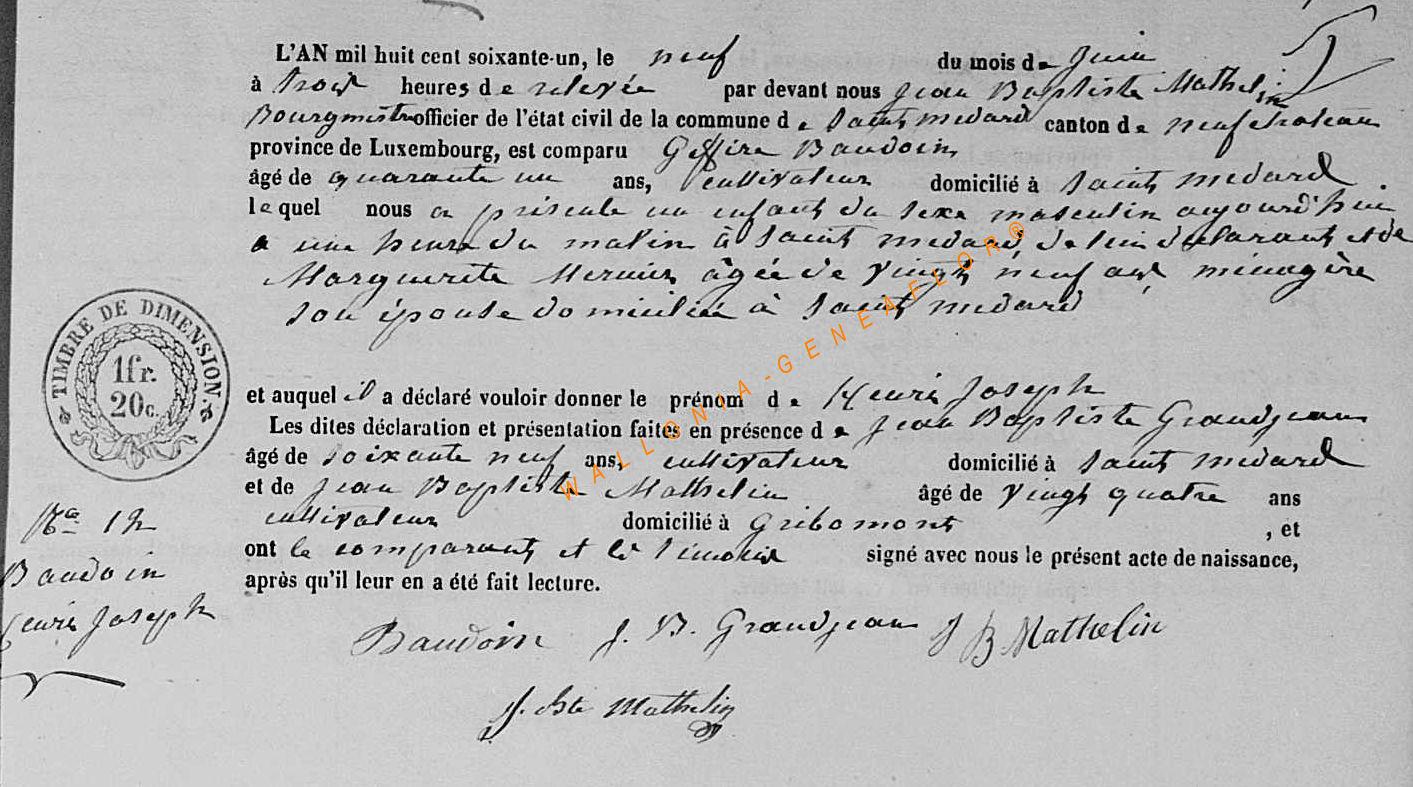 L'AN mil huit cent soixante-un, le neuf du mois de Juin
à trois heures de relevée par devant nous Jean Baptiste Mathelin
Bourgmestre officier de l'état civil de la commune de Saint medard canton de neufchateau
province de Luxembourg, est comparu Baudoin
âgé de quarante un ans, cultivateur domicilié à Saint medard
lequel nous a présenté un enfant du sexe masculin aujourd'hui
a une heure du matin à Saint medard de lui déclarant et de
Marguerite âgée de vingt neuf ans, ménagère
son épouse domiciliée à Saint medard
TIMBRE DE DIMENSION.
1fr.
20c.
et auquel il a déclaré vouloir donner le prénom de Henri Joseph
Les dites déclaration et présentation faites en présence de Jean Baptiste Grandjean
âgé de soixante neuf ans, cultivateur domicilié à Saint medard
et de Jean Baptiste Mathelin âgé de vingt quatre ans
cultivateur domicilié à Gribomont , et
ont le comparant et les témoins signé avec nous le présent acte de naissance,
après qu'il leur en a été fait lecture.
12
Baudoin
Henri Joseph
Baudoin J. B. Grandjean J B Mathelin
J. Bte Mathelin
WALLONIA-GENEAFLOR®